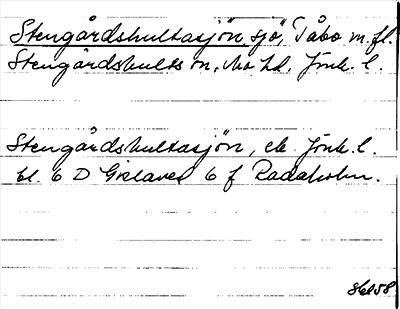 Stengårdshultasjön, sjö, Tåbo m.fl.
Stengårdshults sn, Mo hd. Jönk. l.
Stengårdshultasjön, ek. Jönk. l.
bl. 6 D Gislaved 6 f Radaholm.
86858